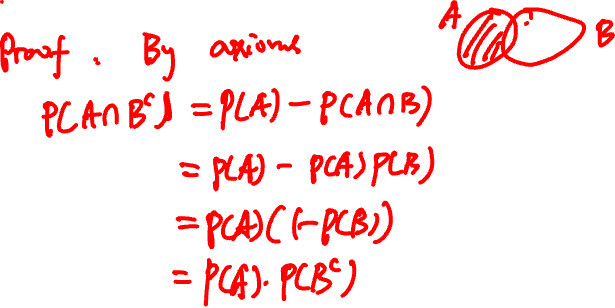 Proof. By axioms
A B
P(A∩Bᶜ) = P(A) - P(A∩B)
= P(A) - P(A) P(B)
= P(A)(1-P(B))
= P(A)·P(Bᶜ)